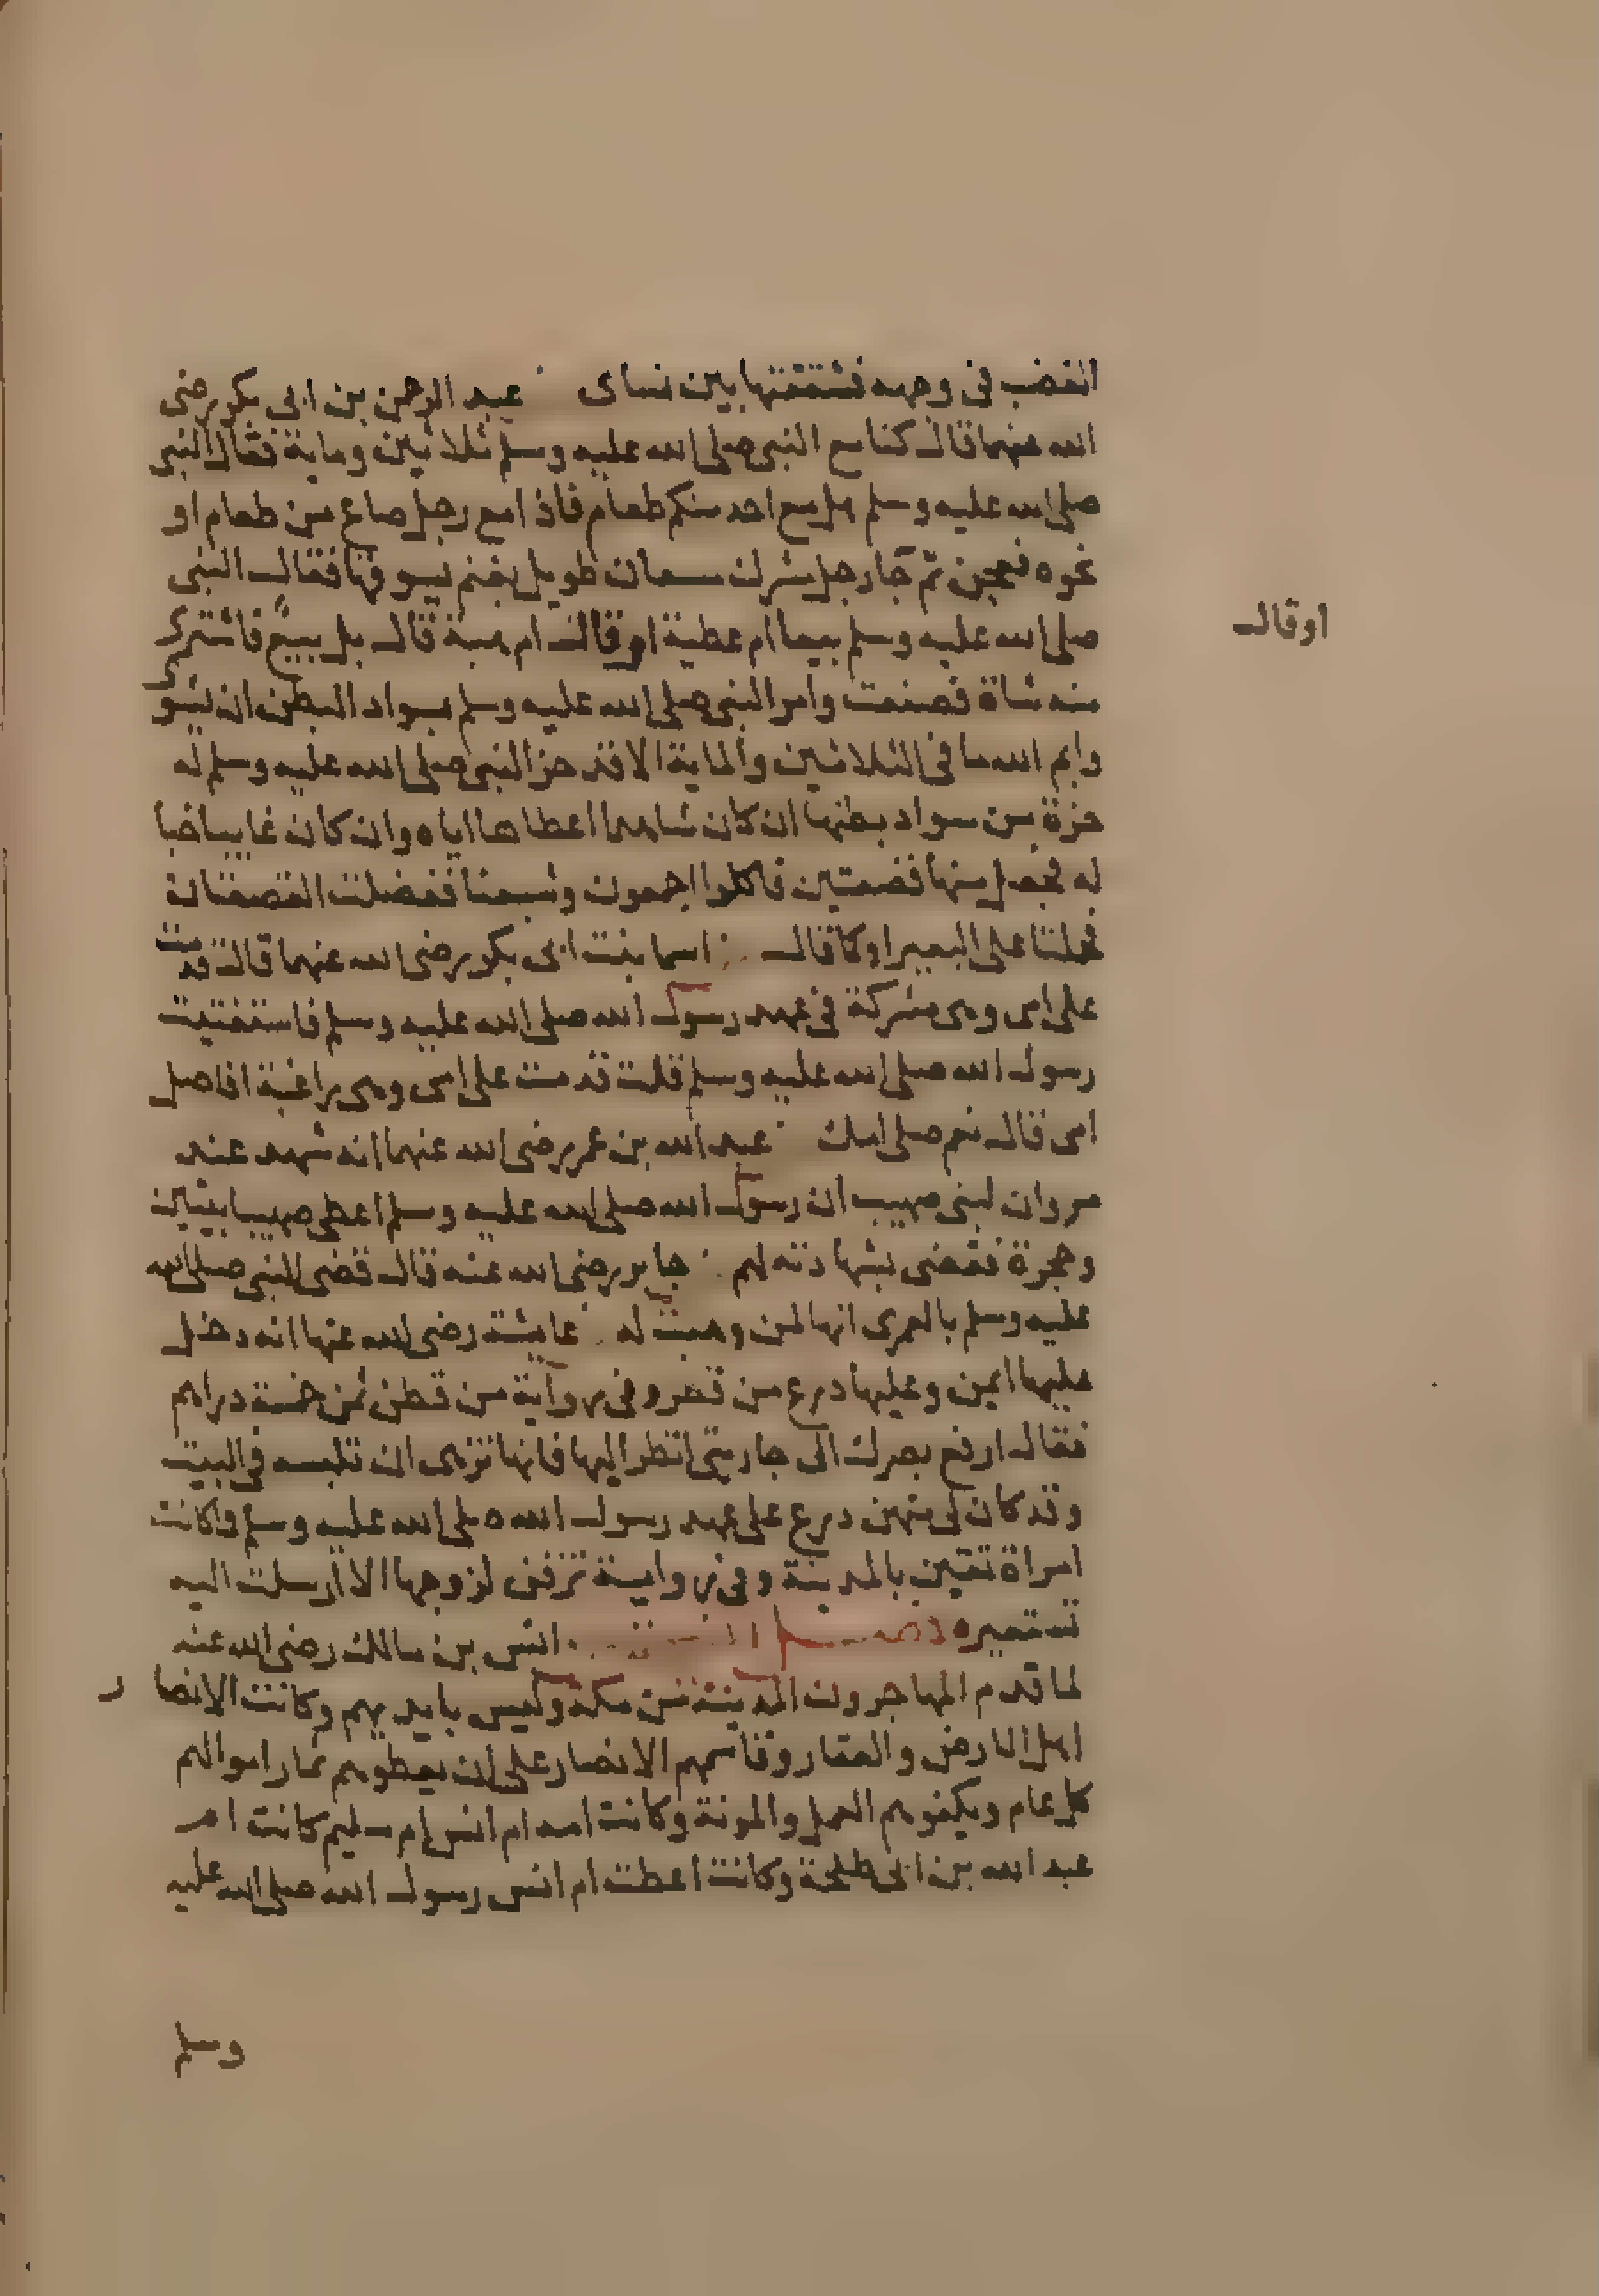 الغضب فى وجهه فشققتها بين نساى عبد الرحمن بن ابى بكر رضى
الله عنهما قال كنا مع النبى صلى الله عليه وسلم ثلاثين وماية فقال النبى
صلى الله عليه وسلم هل مع احد منكم طعام فاذا مع رجل صاع من طعام او
نحوه فعجن ثم جا رجل مشرك مشعان طويل بغنم يسوقها فقال النبى
صلى الله عليه وسلم بيعا ام عطية او قال ام هبة قال بل بيع فاشترى
اوقال
منه شاة فصنعت وامر النبى صلى الله عليه وسلم بسواد البطن ان يشوى
وايم الله ما فى الثلاثين والماية الا قد حز النبى صلى الله عليه وسلم له
حزة من سواد بطنها ان كان شاهدا اعطاها اياه وان كان غايبا خبا
له فجعل منها قصعتين فاكلوا اجمعون وشبعنا ففضلت القصعتان
فحملنا على البعير او كما قال اسما بنت ابى بكر رضى الله عنهما قالت قدمت
على امى وهى مشركة فى عهد رسول الله صلى الله عليه وسلم فاستفتيت
رسول الله صلى الله عليه وسلم قلت قدمت على امى وهى راغبة افاصل
امى قال نعم صلى امك عبد الله بن عمر رضى الله عنهما انه شهد عند
مروان لبنى صهيب ان رسول الله صلى الله عليه وسلم اعطى صهيبا بيتين
وحجرة فقضى بشهادته لهم جابر رضى الله عنه قال قضى النبى صلى الله
عليه وسلم بالعمرى انها لمن وهبت له عايشة رضى الله عنها انه دخل
عليها ايمن وعليها درع من قطر وفى رواية من قطن ثمن خمسة دراهم
فقال ارفع بصرك الى جاريتى انظر اليها فانها تزهى ان تلبسه فى البيت
وقد كان لى منهن درع على عهد رسول الله صلى الله عليه وسلم فما كانت
امراة تقين بالمدينة وفى رواية تزفف لزوجها الا ارسلت الى
تستعيره فضل المنيحة انس بن مالك رضى الله عنه
لما قدم المهاجرون المدينة من مكة وليس بايديهم وكانت الانصار
اهل الارض والعقار وقاسمهم الانصار على ان يعطوهم ثمار اموالهم
كل عام ويكفوهم العمل والمونة وكانت امه ام انس ام سليم كانت ام
عبد الله بن ابى طلحة وكانت اعطت ام انس رسول الله صلى الله عليه
وسلم